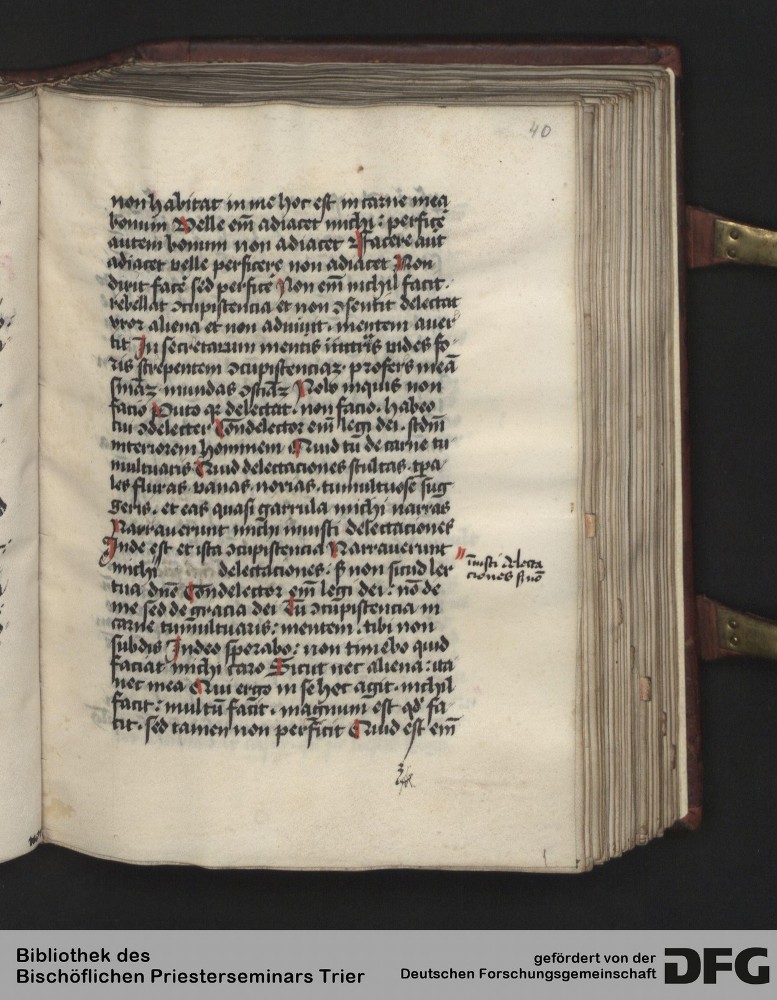 40
non habitat in me hoc est in carne mea
bonum Velle em̄ adiacet michi: perfice᷑
autem bonum non adiacet Facere aut
adiacet velle perficere non adiacet Non
dixit face᷑ sed perfice᷑ Non em̄ nichil facit.
rebellat ɔcupistencia et non ɔsentit delectat
vxor aliena et non . mentem auer
tit In secretarium mentis vides fo
ris strepentem ɔcupistenciaꝫ. profers meā
s̄niāꝫ mundas ɔsciāꝫ Nolo inquis non
facio Puto qꝛ delectat. non facio. habeo
cui ɔdelecter Condelector em̄ legi dei. scd̄m
interiorem hominem Quid tū de carne tu
multuaris Quid delectaciones stultas. tp̄a
les fluxas. vanas. noxias. tumultuose sug
geris. et eas quasi garrula michi narras
Narrauerunt michi iniusti delectaciones
Inde est et ista ɔcupistencia Narrauerunt
michi delectaciones. s̄ non sicud lex
tua dn̄e Condelector em̄ legi dei. nō de
me sed de gracia dei Tu ɔcupistencia in
carne tumultuaris: mentem. tibi non
subdis In deo sperabo: non timebo quid
faciat michi caro Sicut nec aliena: ita
nec mea Qui ergo in se hoc agit. nichil
facit: multū facit. magnum est qd̓ fa
cit. sed tamen non perficit Quid est em̄
iniusti delecta
ciones s̄ nō
Bibliothek des
Bischöflichen Priesterseminars Trier
gefördert von der
Deutschen Forschungsgemeinschaft
DFG